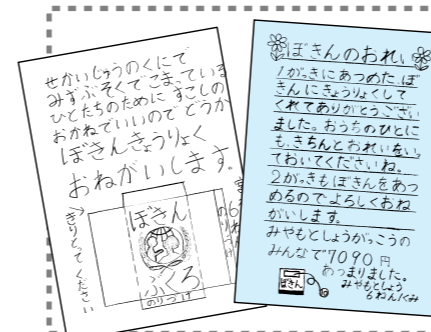 せかいじゅうのくにで
みずぶそくでこまっている
ひとたちのために すこしの
おかねでいいので どうか
ぼきんきょうりょく
おねがいします。
きりとってください
ぼきん
ふくろ
のりづけ
ぼきんのおれい
1がっきにあつめた、ぼ
きんにきょうりょくして
くれてありがとうござい
ました。おうちのひとに
も、きちんとおれいをいっ
ておいてくださいね。
2がっきもぼきんをあつ
めるのでよろしくおね
がいします。
みやもとしょうがっこうの
みんなで7090円
あつまりました。
ぼきん
みやもとしょう
6ねん1くみ